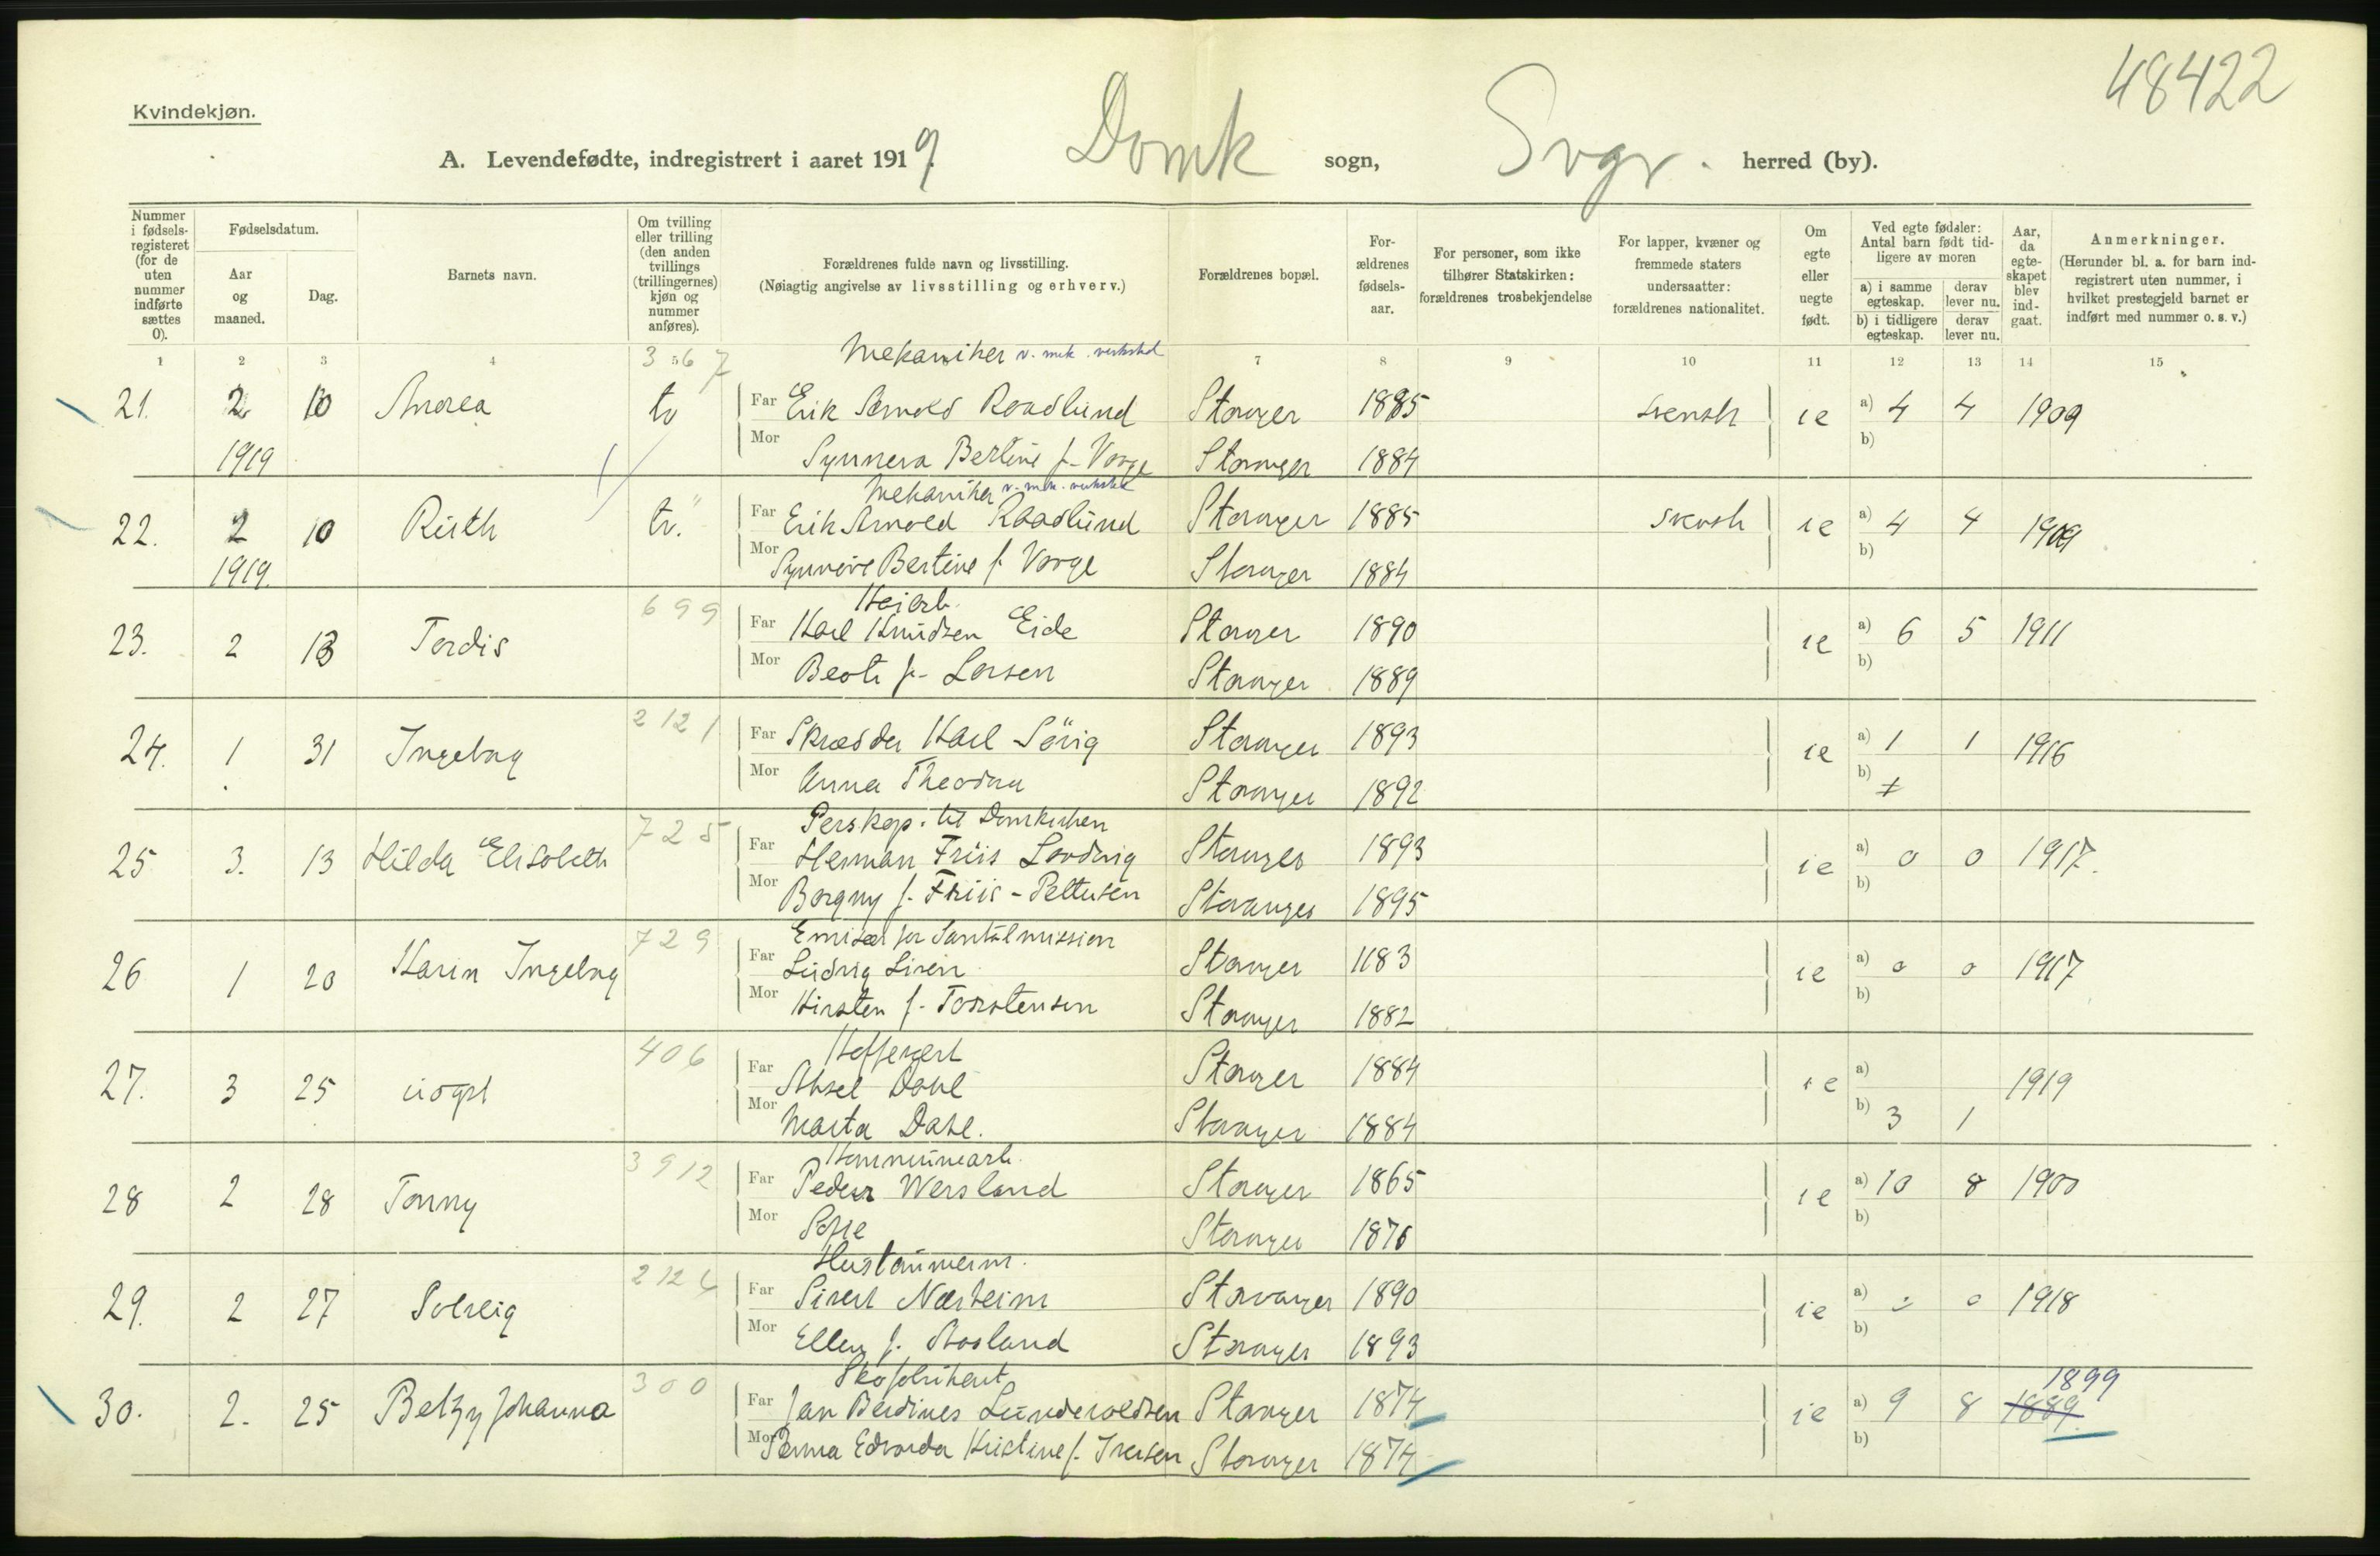 48422
Kvindekjøn.
A. Levendefødte, indregistrert i aaret 1919. Domk sogn, Svgr. herred (by).
Nummer i fødsels-registeret (for de uten nummer indførte sættes 0).
Fødselsdatum.
Aar og maaned.
Dag.
Barnets navn.
Om tvilling eller trilling (den anden tvillings (trillingernes) kjøn og nummer anføres).
Forældrenes fulde navn og livsstilling.
(Nøiagtig angivelse av livsstilling og erhverv.)
Forældrenes bopæl.
For-ældrenes fødsels-aar.
For personer, som ikke tilhører Statskirken: forældrenes trosbekjendelse
For lapper, kvæner og fremmede staters undersaatter: forældrenes nationalitet.
Om egte eller uegte født.
Ved egte fødsler: Antal barn født tid-ligere av moren
a) i samme egteskap.
derav lever nu.
b) i tidligere egteskap.
derav lever nu.
Aar, da egte-skapet blev ind-gaat.
Anmerkninger.
(Herunder bl. a. for barn ind-registrert uten nummer, i hvilket prestegjeld barnet er indført med nummer o. s. v.)
1 2 3 4 5 7 8 9 10 11 12 13 14 15
367 Mekaniker v. mek. verksted
21. 2 10 Andrea tv Far Erik Arnold Raadlund Stavanger 1885 svensk ie a) 4 4 1909
1919 Mor Synneva Bertine f. Varge Stavanger 1884 b)
Mekaniker v. mek. verksted
22. 2 10 Ruth tv. Far Erik Arnold Raadlund Stavanger 1885 svensk ie a) 4 4 1909
1919. Mor Synnøve Bertine f. Varge Stavanger 1884 b)
699
23. 2 13 Tordis Far Karl Knudsen Eide Stavanger 1890 ie a) 6 5 1911
Mor f. Larsen Stavanger 1889 b)
2121
24. 1 31 Ingeborg Far Skrædder Karl Sörig Stavanger 1893 ie a) 1 1 1916
Mor Anna Theodora Stavanger 1892 b)
725 Perskap. til Domkirken
25 3. 13 Hilda Elisabeth Far Herman Friis Lovdvig Stavanger 1893 ie a) 0 0 1917.
Mor Borgny f. Friis-Pettersen Stavanger 1895 b)
729 Emisær for Santalmission
26 1 20 Karin Ingeborg Far Ludvig Liren Stavanger 1183 ie a) 0 0 1917
Mor Kirsten f. Torstensen Stavanger 1882 b)
406
27. 3 25 udøpt Far Aksel Dahl Stavanger 1884 ie a) 1919
Mor Marta Dahl. Stavanger 1884 b) 3 1
3912 Kommunearb.
28 2 28 Tonny Far Peder Wersland Stavanger 1865 ie a) 10 8 1900
Mor Sofie Stavanger 1876 b)
2126 Hustømmerm.
29. 2 27 Solveig Far Sivert Nærheim Stavanger 1890 ie a) 0 1918
Mor Ellen f. Aasland Stavanger 1893 b)
300 Skofabrikant 1899
30. 2. 25 Betzy Johanna Far Jan Berdines Lunderoldsen Stavanger 1874 ie a) 9 8 1889
Mor Edvarda Kristine f. Iversen Stavanger 1874 b)